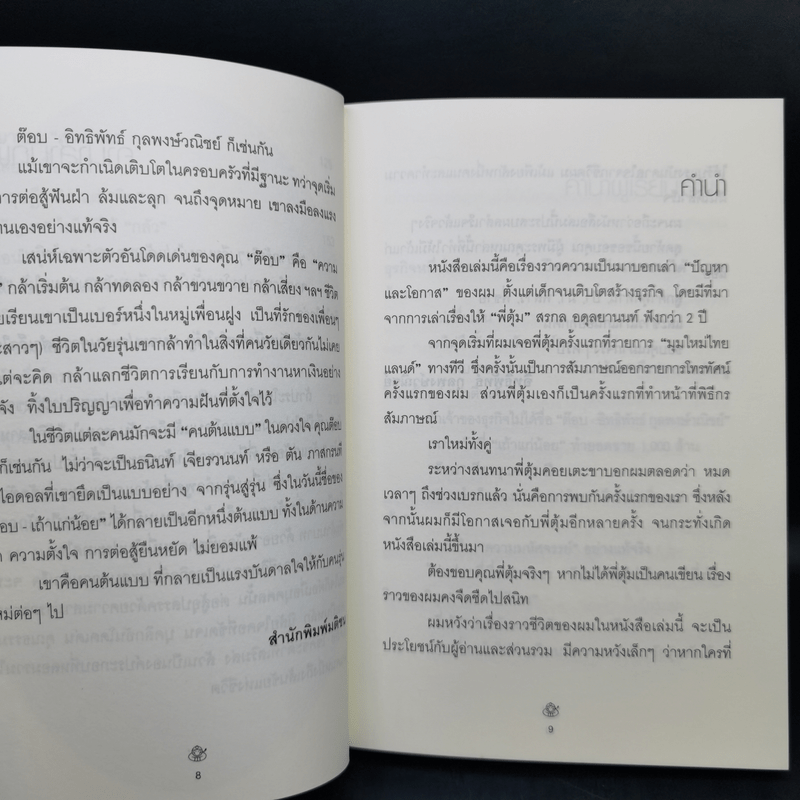 ต๊อบ - อิทธิพัทธ์ กุลพงษ์วณิชย์ ก็เช่นกัน
แม้เขาจะกำเนิดเติบโตในครอบครัวที่มีฐานะ ทว่าจุดเริ่ม
การต่อสู้ฟันฝ่า ล้มและลุก จนถึงจุดหมาย เขาลงมือลงแรง
านเองอย่างแท้จริง
เสน่ห์เฉพาะตัวอันโดดเด่นของคุณ “ต๊อบ” คือ “ความ
” กล้าเริ่มต้น กล้าทดลอง กล้าขวนขวาย กล้าเสี่ยง ฯลฯ ชีวิต
ยเรียนเขาเป็นเบอร์หนึ่งในหมู่เพื่อนฝูง เป็นที่รักของเพื่อนๆ
ะสาวๆ) ชีวิตในวัยรุ่นเขากล้าทำในสิ่งที่คนวัยเดียวกันไม่เคย
แต่จะคิด กล้าแลกชีวิตการเรียนกับการทำงานหาเงินอย่าง
จัง ทิ้งใบปริญญาเพื่อทำความฝันที่ตั้งใจไว้
ในชีวิตแต่ละคนมักจะมี “คนต้นแบบ” ในดวงใจ คุณต๊อบ
ก็เช่นกัน ไม่ว่าจะเป็นธนินท์ เจียรวนนท์ หรือ ตัน ภาสกรนที
ไอดอลที่เขายึดเป็นแบบอย่าง จากรุ่นสู่รุ่น ซึ่งในวันนี้ชื่อของ
อบ - เถ้าแก่น้อย” ได้กลายเป็นอีกหนึ่งต้นแบบ ทั้งในด้านความ
ความตั้งใจ การต่อสู้ยืนหยัด ไม่ยอมแพ้
เขาคือคนต้นแบบ ที่กลายเป็นแรงบันดาลใจให้กับคนรุ่น
ใหม่ต่อๆ ไป
สำนักพิมพ์มติชน
8
คำนำ
หนังสือเล่มนี้คือเรื่องราวความเป็นมาบอกเล่า “ปัญหา
และโอกาส” ของผม ตั้งแต่เด็กจนเติบโตสร้างธุรกิจ โดยมีที่มา
จากการเล่าเรื่องให้ “พี่ตุ้ม” สรกล อดุลยานนท์ ฟังกว่า 2 ปี
จากจุดเริ่มที่ผมเจอพี่ตุ้มครั้งแรกที่รายการ “มุมใหม่ไทย
แลนด์” ทางทีวี ซึ่งครั้งนั้นเป็นการสัมภาษณ์ออกรายการโทรทัศน์
ครั้งแรกของผม ส่วนพี่ตุ้มเองก็เป็นครั้งแรกที่ทำหน้าที่พิธีกร
สัมภาษณ์
เราใหม่ทั้งคู่
ระหว่างสนทนาพี่ตุ้มคอยเตะขาบอกผมตลอดว่า หมด
เวลาๆ ถึงช่วงเบรกแล้ว นั่นคือการพบกันครั้งแรกของเรา ซึ่งหลัง
จากนั้นผมก็มีโอกาสเจอกับพี่ตุ้มอีกหลายครั้ง จนกระทั่งเกิด
หนังสือเล่มนี้ขึ้นมา
ต้องขอบคุณพี่ตุ้มจริงๆ หากไม่ได้พี่ตุ้มเป็นคนเขียน เรื่อง
ราวของผมคงจืดชืดไปสนิท
ผมหวังว่าเรื่องราวชีวิตของผมในหนังสือเล่มนี้ จะเป็น
ประโยชน์กับผู้อ่านและส่วนรวม มีความหวังเล็กๆ ว่าหากใครที่
9